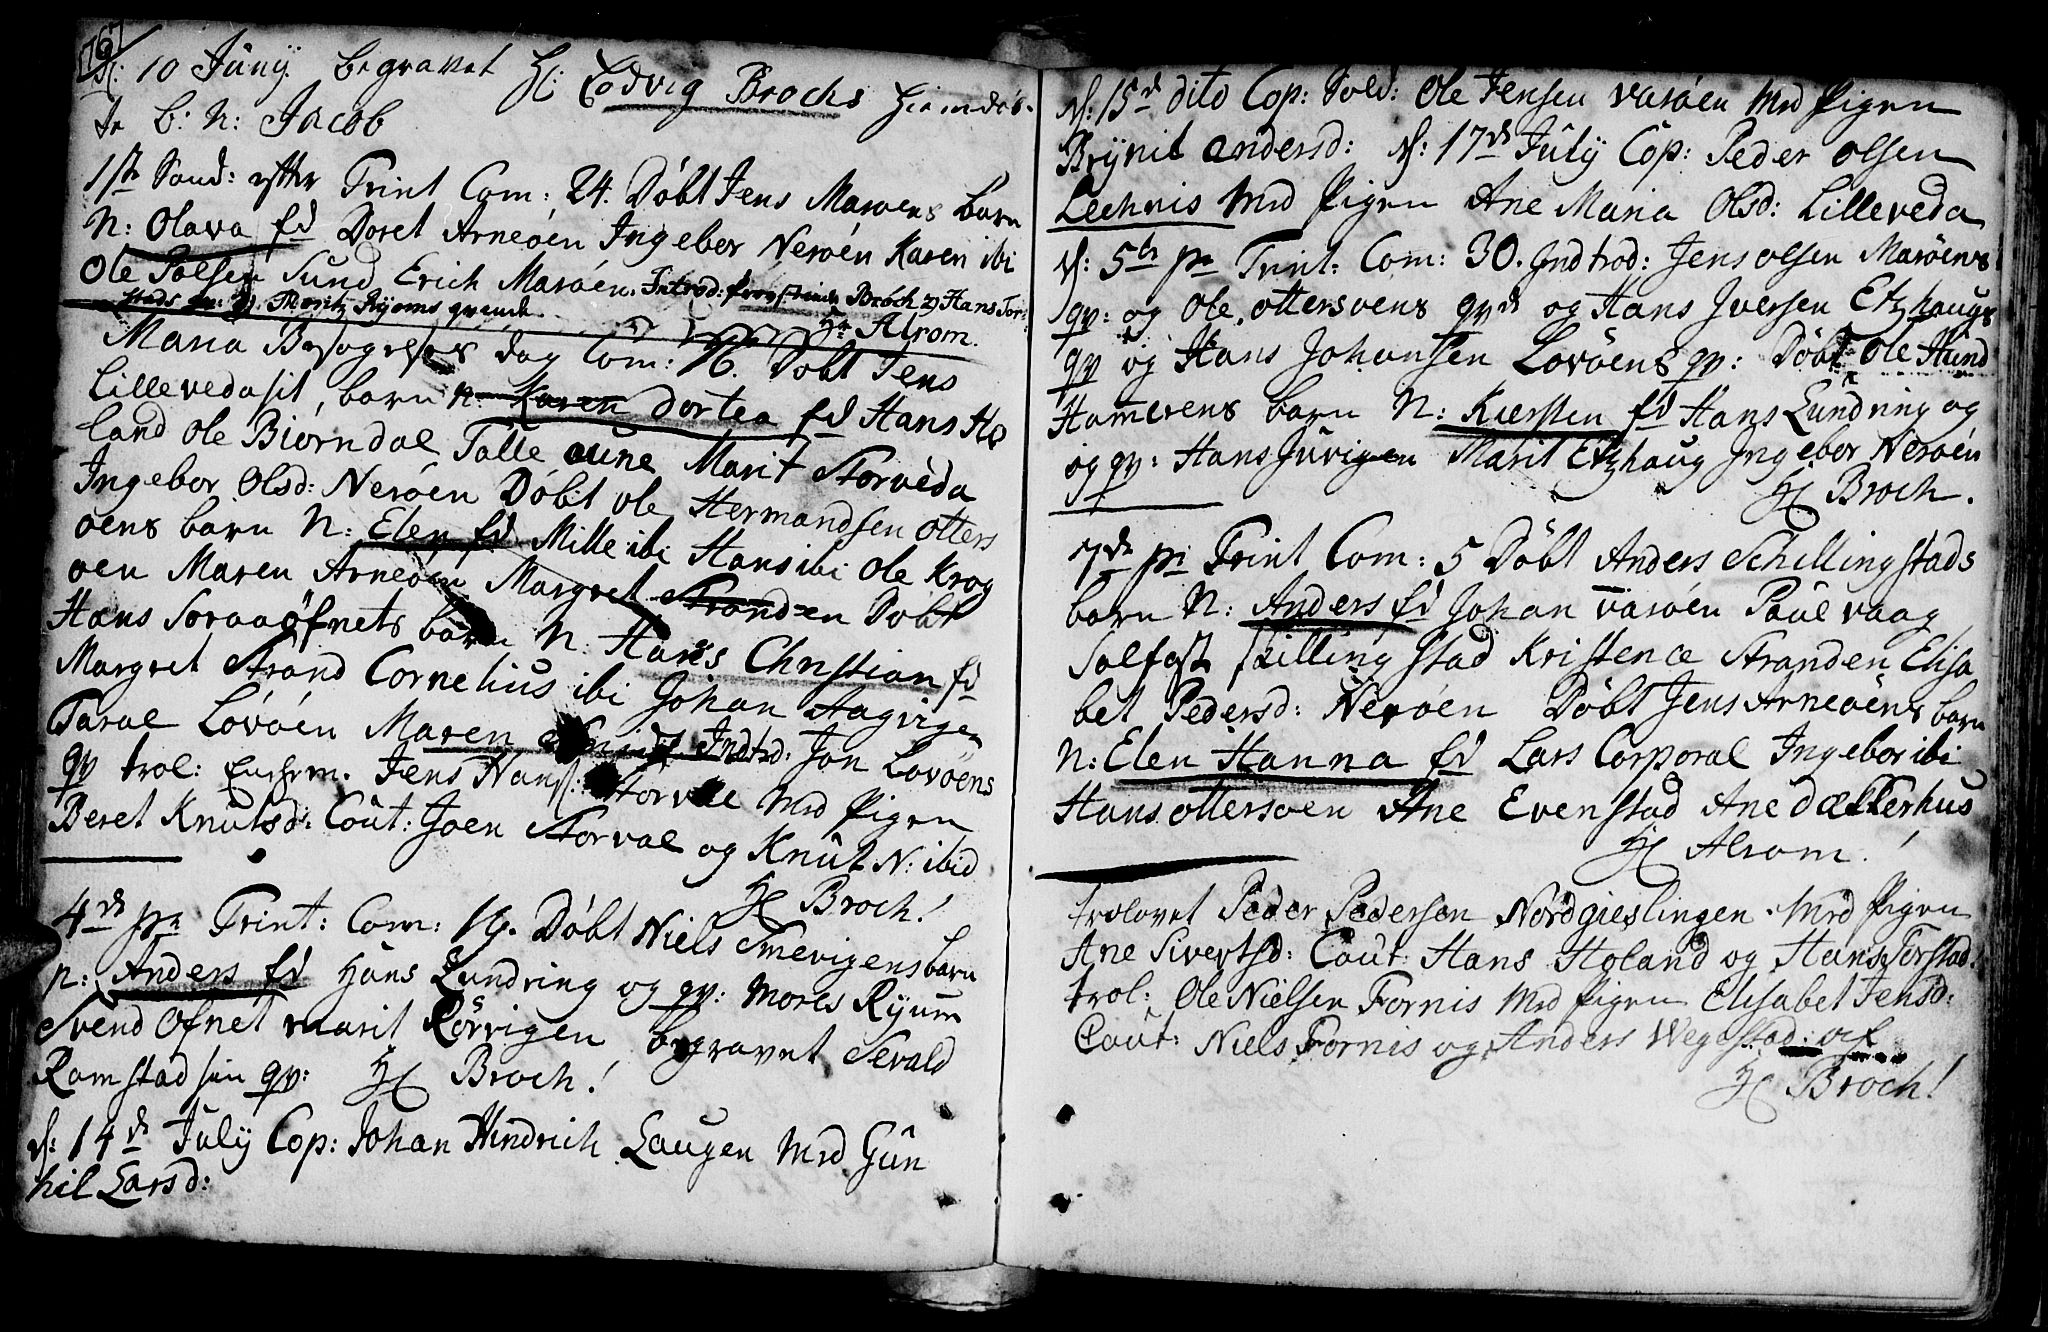 1767
d: 10 Juny begravet H: Lodvig Brochs hiemdøb-
te b: N: Jacob
1ste Sond: effter Trinit Com: 24. Døbt Jens Marøens barn
N: Olava fd Doret Arneøen Ingebor Nerøen Karen ibi
Ole Polsen Sund Erich Marøen. Introd: Broch og Hans Tor-
stads qv: og Moritz Ryems qvinde
Hr Alrom.
Maria Besøgelses dag Com: 16. Døbt Jens
Lillevedasit, barn n: Karen Dortea fd Hans Ho
land Ole Biørndal Tolle aune Marit Storveda
Ingebor Olsd: Nerøen Døbt Ole Hermandsen Otters
øens barn N: Elen fd Mille ibi Hans ibi Ole Krog
øen Maren Arneøen Margret Stranden Døbt
Hans Soraaøfnets barn N: Hans Christian fd
Margret Strand Cornelius ibi Johan Aagvigen
Taral Lovøen Maren Indtrod: Jon Lovøens
qv trol: Jens Hans: Storval Med Pigen
Beret Knutsd: Cout: Joen Storval og Knut N: ibid
H Broch!
4de p: Trinit: Com: 19. Døbt Niels Smevigens barn
n: Anders fd Hans Lundring og qv: Morits Ryum
Svend Øfnet Marit Rørvigen begravet Sevald
Romstad sin qv: H Broch!
d: 14de July Cop: Johan Hindrich Laugen Med Gun
hil Larsd:
d: 15de dito Cop: Sold: Ole Jensen Varøen Med Pigen
Brynil Andersd: d: 17de July Cop: Peder Olsen
Lechnis Med Pigen Ane Maria Olsd: Lilleveda
d: 5te p: Trinit: Com: 30. Indtrod: Jens Olsen Marøens
qv: og Ole Ottersøens qvd og Hans Iversen Etzhaugs
qv og Hans Johansen Lovøens qv: Døbt Ole Hund
Hamerens barn N: Kiersten fd Hans Lundring og
og qv: Hans Juvigen Marit Etzhaug Ingebor Nerøen
H Broch.
7de p: Trinit Com: 5 Døbt Anders Schillingstads
barn N: Anders fd Johan Varøen Paul vaag
Solfast skillingstad Kristence Stranden Elisa
bet Pedersd: Nerøen Døbt Jens Arneøens barn
N: Elen Hanna fd Lars Corporal Ingebor ibi
Hans Ottersøen Ane Evenstad Ane Dækkerhus
H Alrom!
trolovet Peder Pedersen Nordgieslingen Med Pigen
Ane Sivertsd: Cout: Hans Holand og Hans Torstad.
trol: Ole Nielsen Fornis Med Pigen Elisabet Jensd:
Cout: Niels Fornis og Anders Wegestad
H Broch!